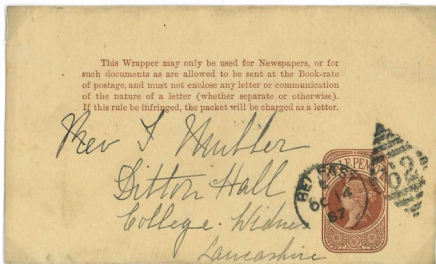 This Wrapper may only be used for Newspapers, or for
such documents as are allowed to be sent at the Book-rate
of postage, and must not enclose any letter or communication
of the nature of a letter (whether separate or otherwise).
If this rule be infringed, the packet will be charged as a letter.
Rev
Ditton Hall
College. Widnes
Lancashire
BELFAST
OC 14
87
62